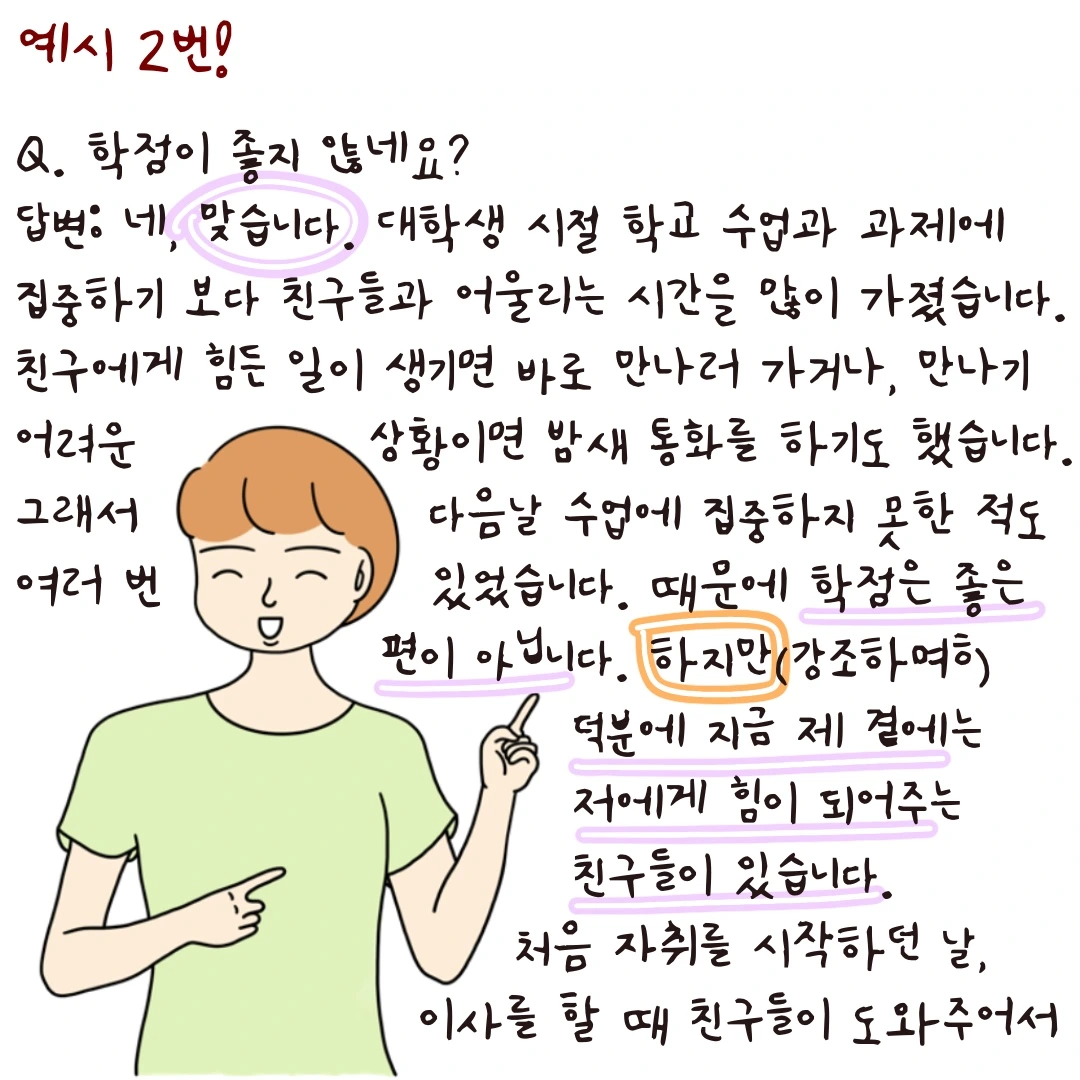 예시 2번!
Q. 학점이 좋지 않네요?
답변: 네, 맞습니다. 대학생 시절 학교 수업과 과제에
집중하기 보다 친구들과 어울리는 시간을 많이 가졌습니다.
친구에게 힘든 일이 생기면 바로 만나러 가거나, 만나기
어려운 상황이면 밤새 통화를 하기도 했습니다.
그래서 다음날 수업에 집중하지 못한 적도
여러 번 있었습니다. 때문에 학점은 좋은
편이 아닙니다. 하지만(강조하며ㅎ)
덕분에 지금 제 곁에는
저에게 힘이 되어주는
친구들이 있습니다.
처음 자취를 시작하던 날,
이사를 할 때 친구들이 도와주어서